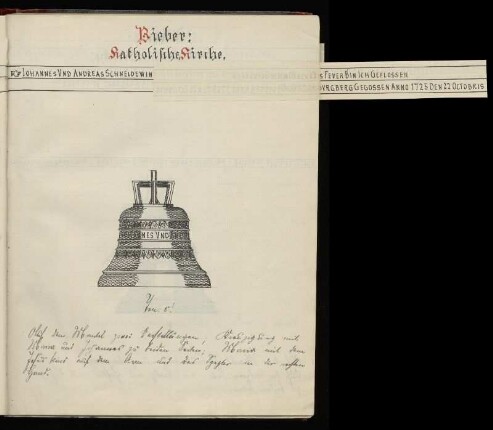 Bieber:
Katholische Kirche.
JOHANNES VND ANDREAS SCHNEIDEWIN
S FEVER BIN ICH GEFLOSSEN
VRGBERG GEGOSSEN ANNO 1725 DEN 22 OCTOBRIS
NES VND
Auf dem Mantel zwei Darstellungen, Kreuzigung mit
Maria und Johannes zu beiden Seiten, Maria mit dem
Jesuskind auf dem Arm und das Szepter in der rechten
Hand.